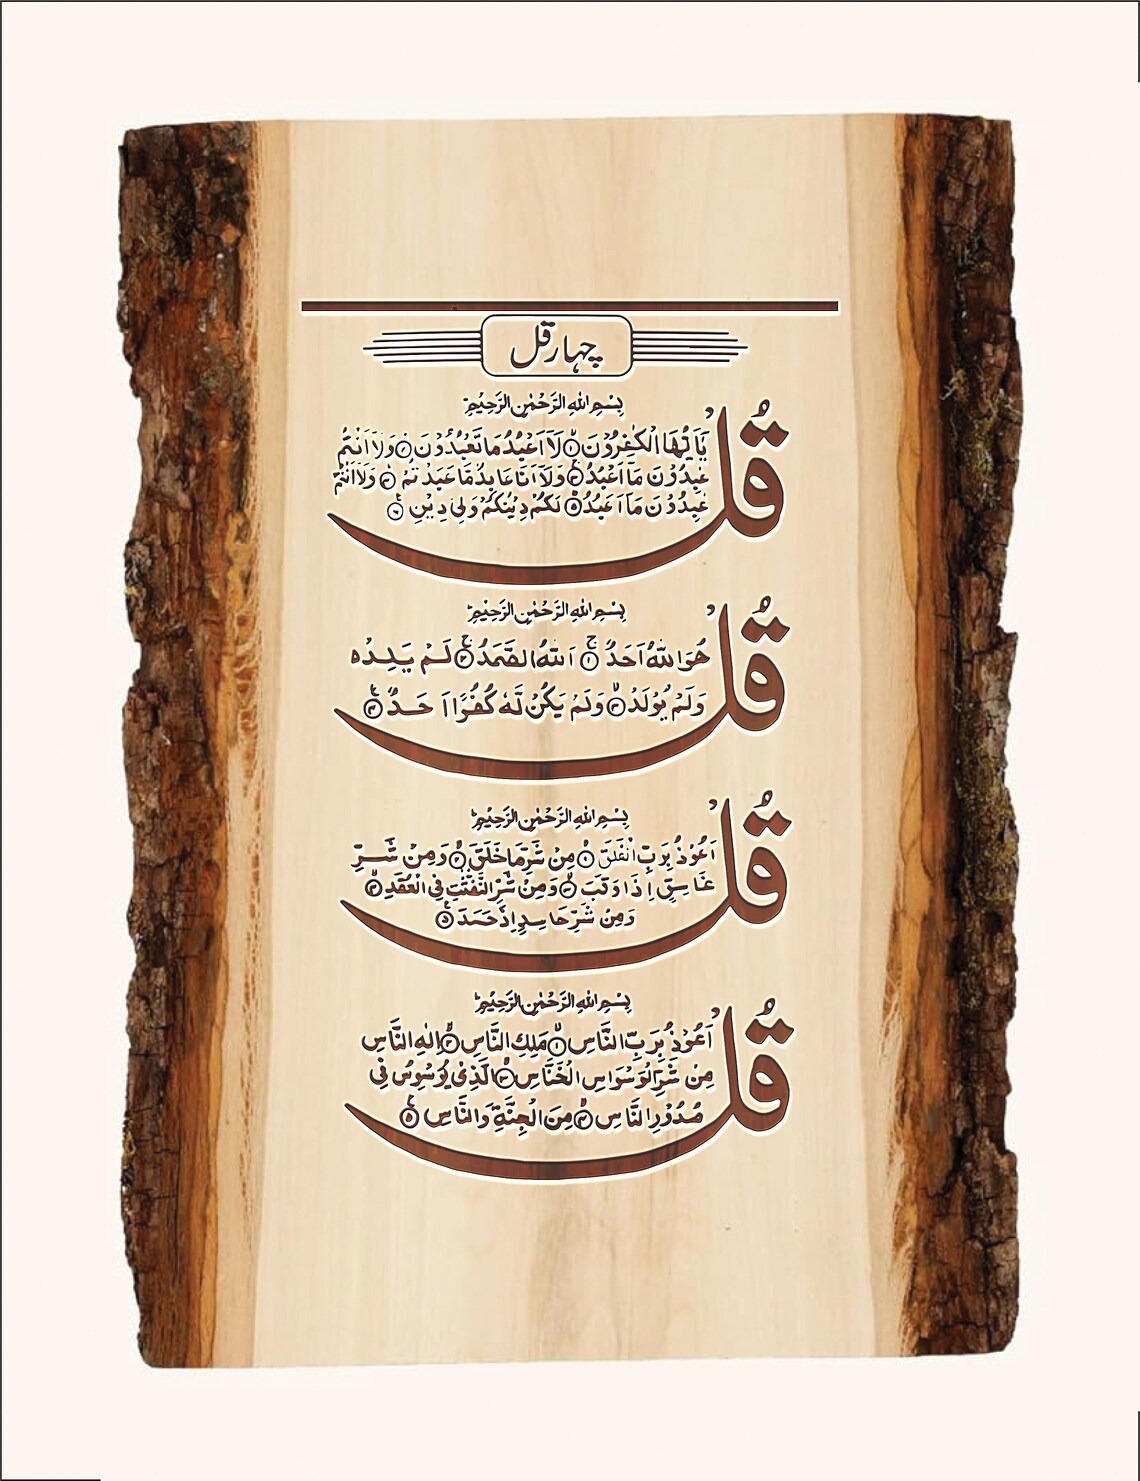 چہار قل
بِسْمِ اللهِ الرَّحْمٰنِ الرَّحِيْمِ
قُلْ يَآ يُّهَا الْكٰفِرُوْنَ ۝۱ لَآ اَعْبُدُ مَا تَعْبُدُوْنَ ۝۲ وَلَآ اَنْتُمْ
عٰبِدُوْنَ مَآ اَعْبُدُ ۝۳ وَلَآ اَنَا عَا بِدٌ مَّا عَبَدْ تُّمْ ۝۴ وَلَآ اَنْتُمْ
عٰبِدُوْنَ مَآ اَعْبُدُ ۝۵ لَكُمْ دِيْنُكُمْ وَلِيَ دِيْنِ ۝۶
بِسْمِ اللهِ الرَّحْمٰنِ الرَّحِيْمِ
قُلْ هُوَ اللّٰهُ اَحَدٌ ۝۱ اَللّٰهُ الصَّمَدُ ۝۲ لَمْ يَلِدْ ە
وَلَمْ يُوْلَدْ ۝۳ وَلَمْ يَكُنْ لَّهٗ كُفُوًا اَ حَدٌ ۝۴
بِسْمِ اللهِ الرَّحْمٰنِ الرَّحِيْمِ
قُلْ اَعُوْذُ بِرَبِّ الْفَلَقِ ۝۱ مِنْ شَرِّ مَا خَلَقَ ۝۲ وَمِنْ شَرِّ
غَا سِقٍ اِ ذَا وَقَبَ ۝۳ وَمِنْ شَرِّ النَّفّٰثٰتِ فِي الْعُقَدِ ۝۴
وَمِنْ شَرِّ حَا سِدٍ اِذَ حَسَدَ ۝۵
بِسْمِ اللهِ الرَّحْمٰنِ الرَّحِيْمِ
قُلْ اَعُوْذُ بِرَبِّ النَّاسِ ۝۱ مَلِكِ النَّاسِ ۝۲ اِلٰهِ النَّاسِ
مِنْ شَرِّ الْوَسْوَاسِ الْخَنَّاسِ ۝۳ الَّذِيْ يُوَسْوِسُ فِيْ
صُدُوْرِ النَّاسِ ۝۴ مِنَ الْجِنَّةِ وَالنَّاسِ ۝۵